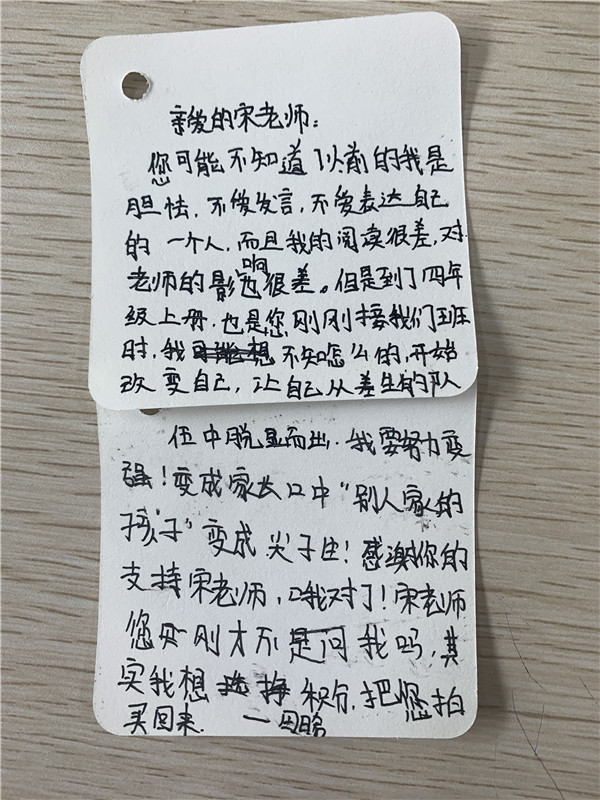 亲爱的宋老师:
您可能不知道了以前的我是
胆怯,不爱发言,不爱表达自己
的一个人,而且我的阅读很差,对
老师的影响也很差。但是到了四年
级上册,也是您刚刚接我们班
时,我不知怎么的,开始
改变自己,让自己从差生的队
伍中脱显而出,我要努力变
强!变成家长口中“别人家的
孩子”变成尖子生!感谢你的
支持宋老师,哦对了!宋老师
您刚才不是问我吗,其
实我想挣积分,把您拍
买回来.